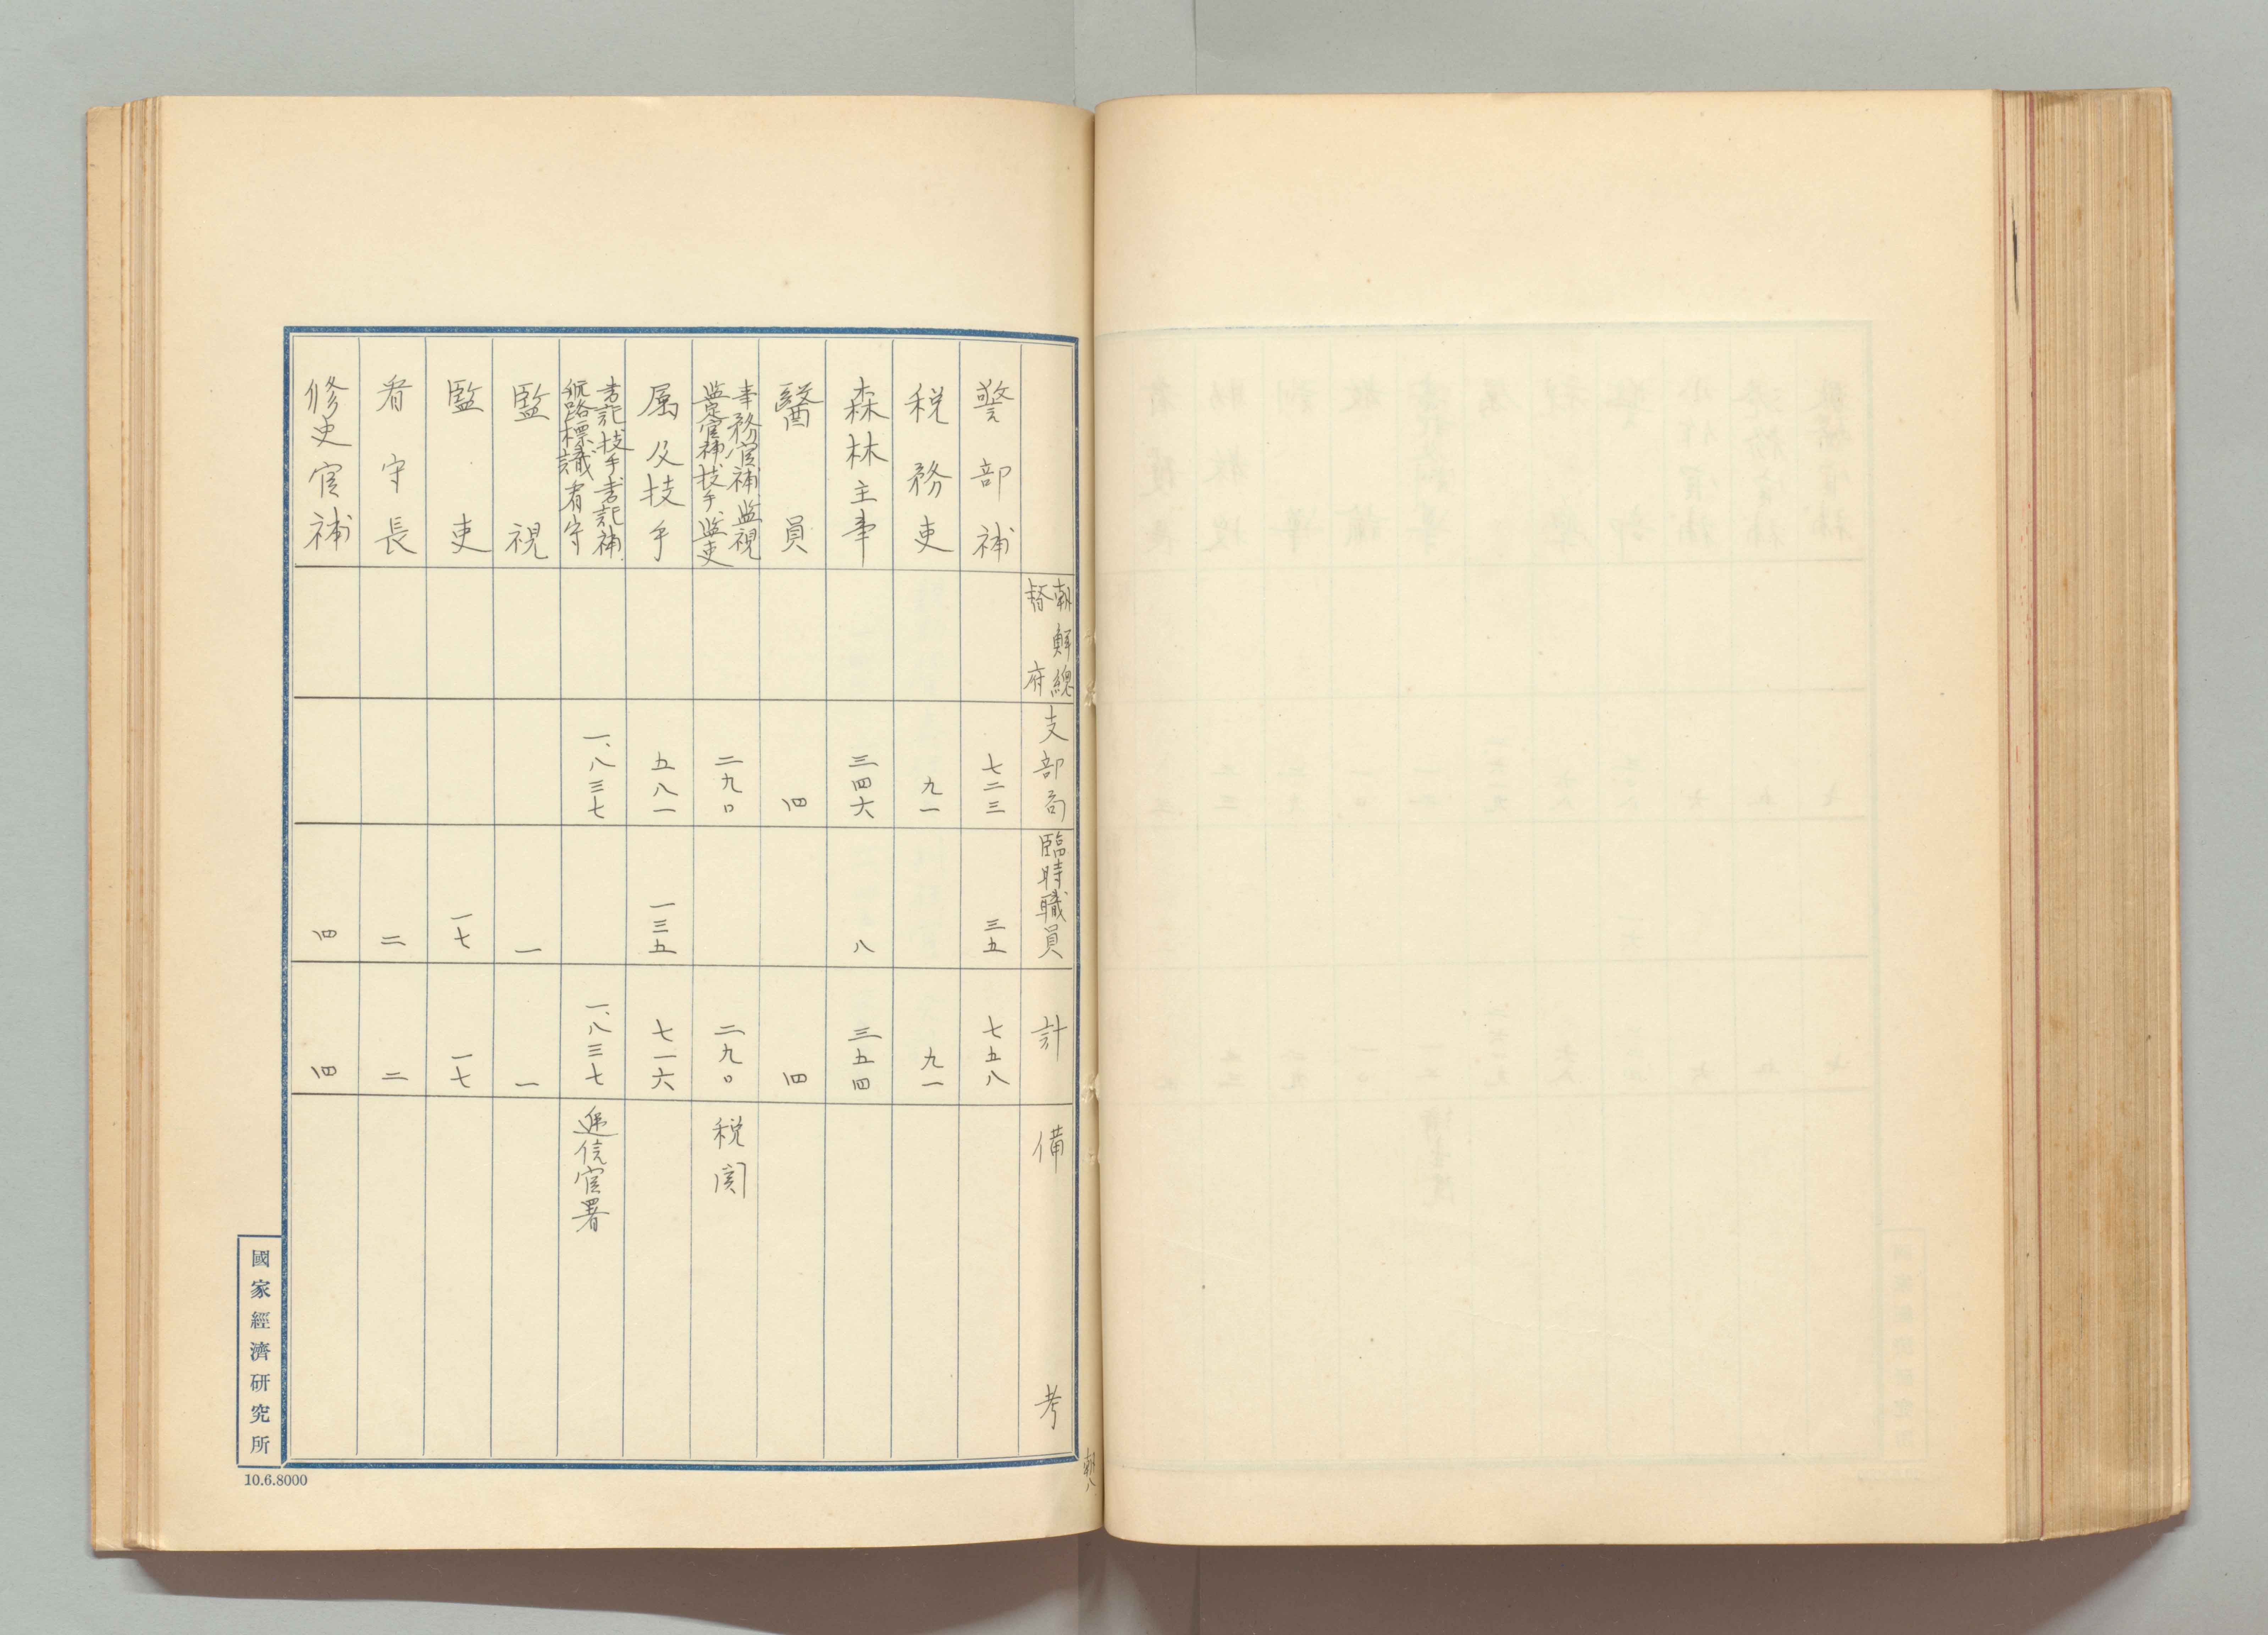 朝鮮總督府 支部局 臨時職員 計 備考
警部補 七二三 三五 七五八
税務吏 九一 九一
森林主事 三四六 八 三五四
醫員 四 四
事務官補 監視 監定官補 技手 監吏 二九〇 二九〇 税関
属及技手 五八一 一三五 七一六
書記 技手 書記補 航路標識看守 一、八三七 一、八三七 逓信官署
監視 一 一
監吏 一七 一七
看守長 二 二
修史官補 四 四
朝八
國家經濟研究所
10.6.8000